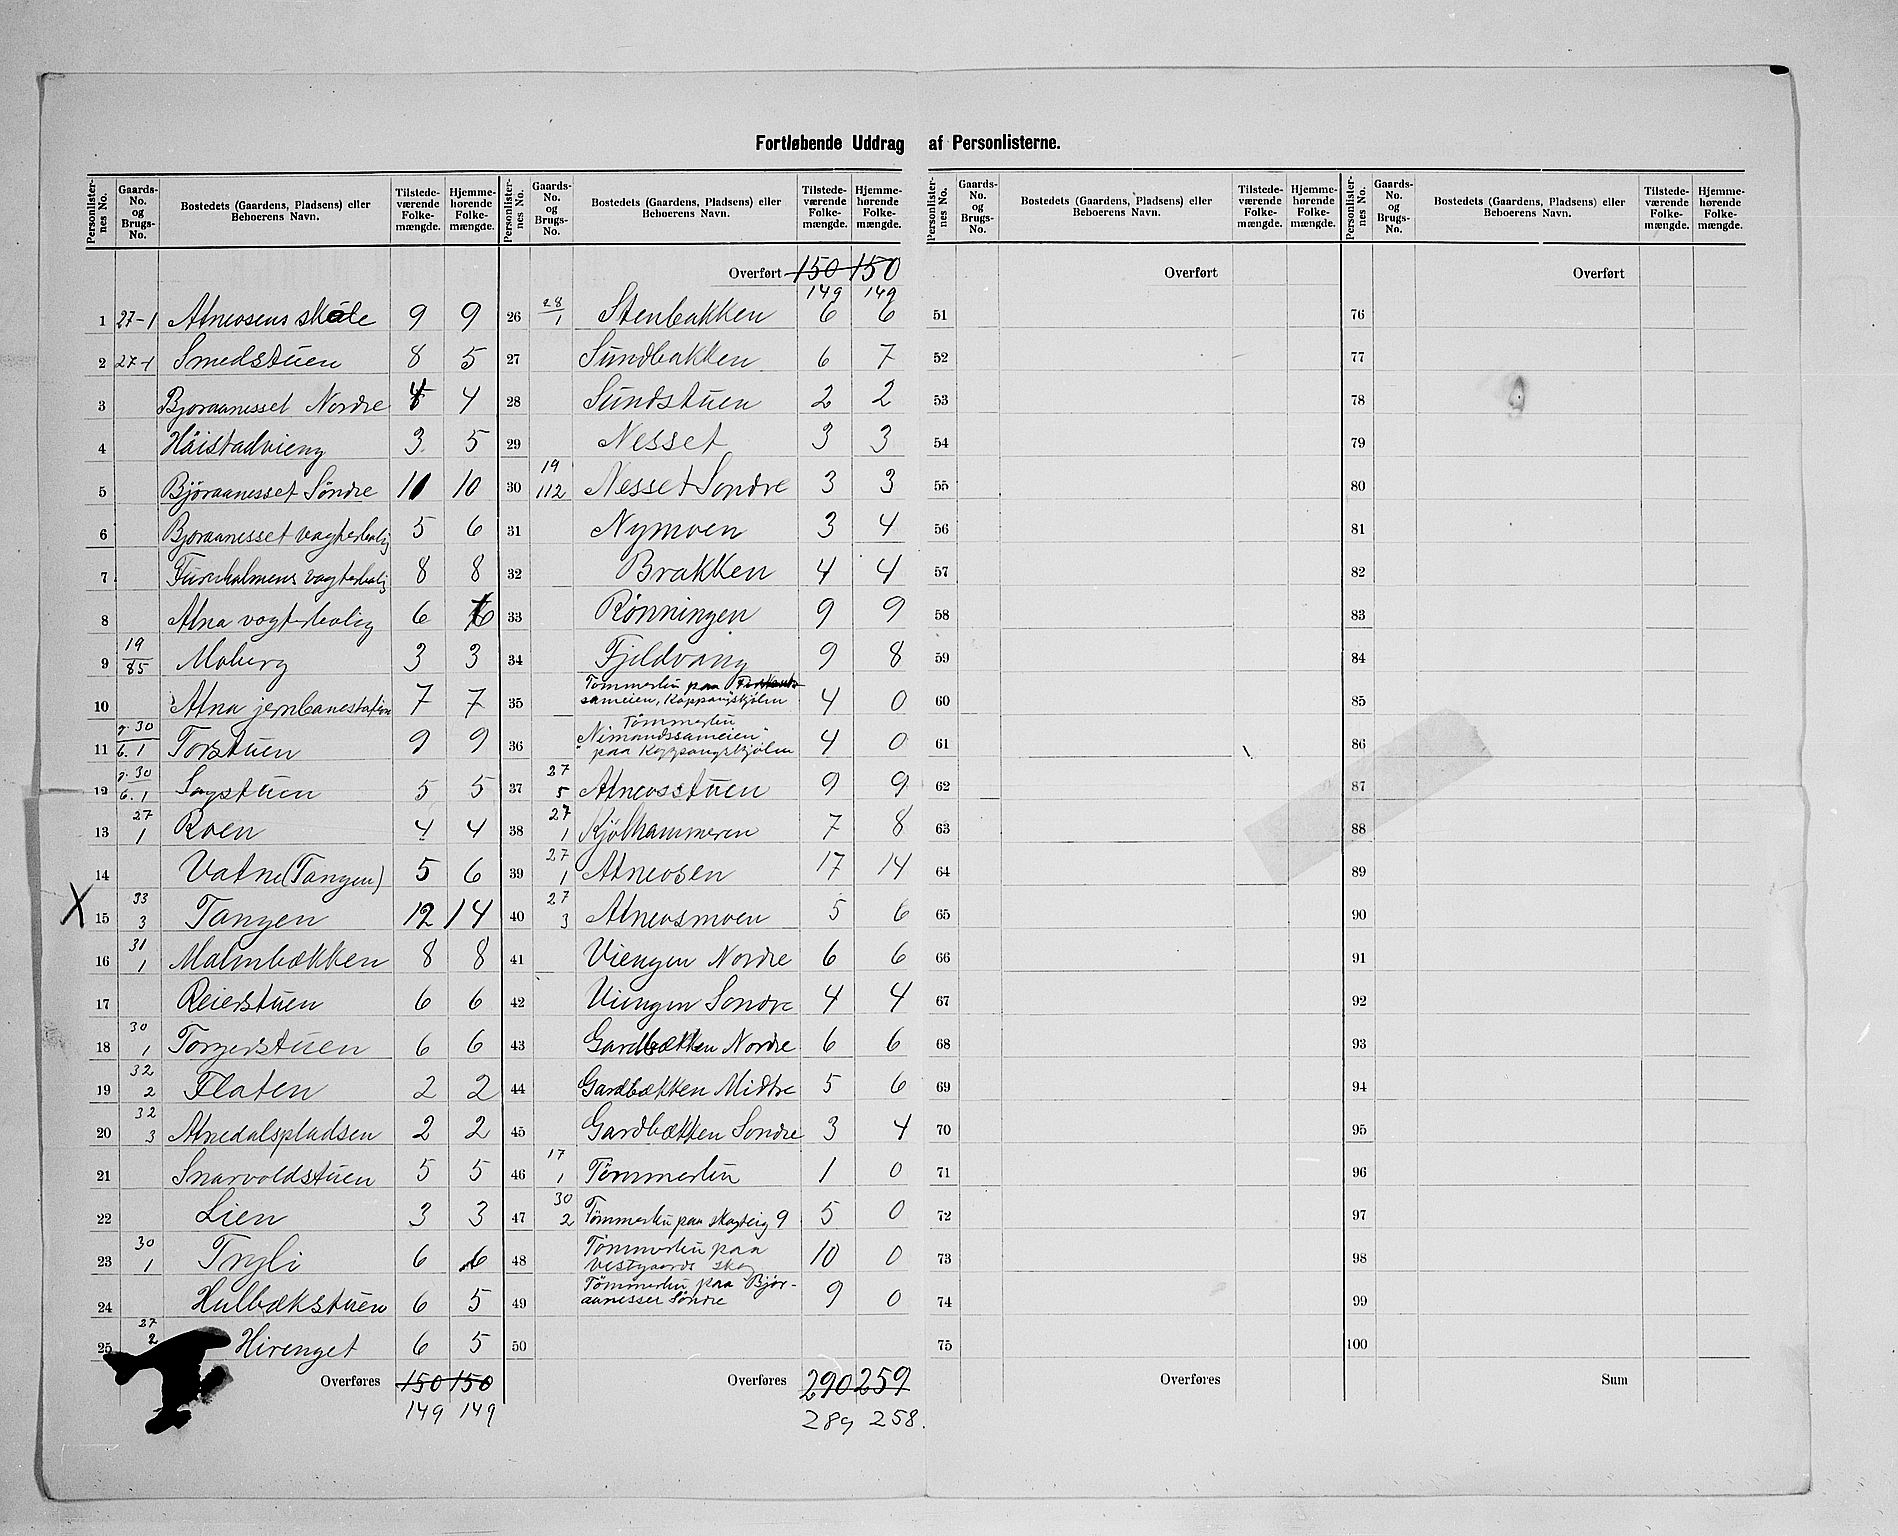 Fortløbende Uddrag af Personlisterne.
Personlister-nes No. | Gaards-No. og Brugs-No. | Bostedets (Gaardens, Pladsens) eller Beboerens Navn. | Tilstede-værende Folke-mængde. | Hjemme-hørende Folke-mængde.
1 | 27-1 | Atneosens skole | 9 | 9
2 | 27-1 | Smedstuen | 8 | 5
3 | Bjoraanesset Nordre | 4 | 4
4 | Häistadvieng | 3 | 5
5 | Björaanesset Söndre | 11 | 10
6 | Bjoraanesset vagterbolig | 5 | 6
7 | Furuholmens vagterbolig | 8 | 8
8 | Atna vogterbolig | 6 | 6
9 | 19/85 | Moberg | 3 | 3
10 | Atna jernbanestation | 7 | 7
11 | g. 30 6. 1 | Torstuen | 9 | 9
12 | g. 30 6. 1 | Sagstuen | 5 | 5
13 | 27 1 | Roen | 4 | 4
14 | Vatne (Tangen) | 5 | 6
X 15 | 33 3 | Tangen | 12 | 14
16 | 31 1 | Malmbækken | 8 | 8
17 | Reierstuen | 6 | 6
18 | 30 1 | Torgerstuen | 6 | 6
19 | 32 2 | Flaten | 2 | 2
20 | 32 3 | Atnedalspladsen | 2 | 2
21 | Snarvoldstuen | 5 | 5
22 | Lien | 3 | 3
23 | 30 1 | Tryli | 6 | 6
24 | Hulbækstuen | 6 | 5
25 | 27 2 | Hirenget | 6 | 5
Overføres 150 150
149 149
Personlister-nes No. | Gaards-No. og Brugs-No. | Bostedets (Gaardens, Pladsens) eller Beboerens Navn. | Tilstede-værende Folke-mængde. | Hjemme-hørende Folke-mængde.
Overført 150 150
149 149
26 | 28/1 | Stenbakken | 6 | 6
27 | Sundbakken | 6 | 7
28 | Sundstuen | 2 | 2
29 | Nesset | 3 | 3
30 | 19 112 | Nesset Sondre | 3 | 3
31 | Nymoen | 3 | 4
32 | Brakken | 4 | 4
33 | Rönningen | 9 | 9
34 | Fjeldvang | 9 | 8
35 | Tömmerhu paa sameien, Koppangskjölen | 4 | 0
36 | Tömmerhu "Nimandssameien" paa Koppangskjölen | 4 | 0
37 | 27 5 | Atneosstuen | 9 | 9
38 | 27 1 | Kjölhammeren | 7 | 8
39 | 27 1 | Atneosen | 17 | 14
40 | 27 3 | Atneosmoen | 5 | 6
41 | Viengen Nordre | 6 | 6
42 | Viengen Sondre | 4 | 4
43 | Gardbækken Nordre | 6 | 6
44 | Gardbækken Midtre | 5 | 6
45 | Gardbækken Sondre | 3 | 4
46 | 17 1 | Tömmerhu | 1 | 0
47 | 30 2 | Tömmerhu paa skogteig 9 | 5 | 0
48 | Tömmerhu paa Vestgaards skog | 10 | 0
49 | Tömmerhu paa Bjor-aanesset Söndre | 9 | 0
50
Overføres 290 259
289 258.
Personlister-nes No. | Gaards-No. og Brugs-No. | Bostedets (Gaardens, Pladsens) eller Beboerens Navn. | Tilstede-værende Folke-mængde. | Hjemme-hørende Folke-mængde.
Overført
51
52
53
54
55
56
57
58
59
60
61
62
63
64
65
66
67
68
69
70
71
72
73
74
75
Overføres
Personlister-nes No. | Gaards-No. og Brugs-No. | Bostedets (Gaardens, Pladsens) eller Beboerens Navn. | Tilstede-værende Folke-mængde. | Hjemme-hørende Folke-mængde.
Overført
76
77
78
79
80
81
82
83
84
85
86
87
88
89
90
91
92
93
94
95
96
97
98
99
100
Sum